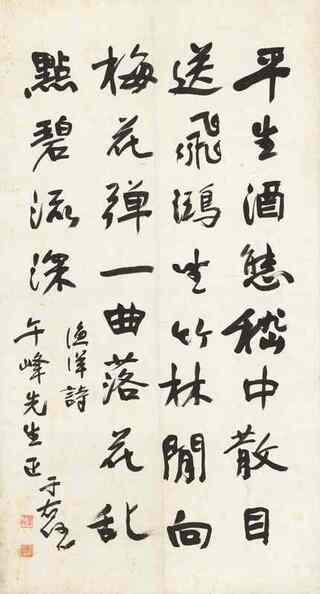 平生酒態嵇中散目
送飛鴻坐竹林閒向
梅花彈一曲落花亂
點碧流深
漁洋詩
午峰先生正
于右任